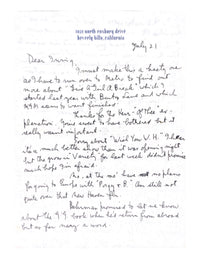 1021 north roxbury drive
beverly hills, california
July 21
Dear Irving,
I must make this a hasty one
as I have to run over to Metro to find out
more about "Give A Girl A Break" which I
started last year with Burton Lane and which
MGM seems to want finished.
Thanks for the Her- of Thee ex-
planation. You needn't have bothered but it
really wasn't important.
Sorry about "Wish You W. H." I hear
it's a much better show than it was opening night
but the gross in Variety for last week didn't promise
much hope I'm afraid.
No, at the mo' have no plans
for going to Europe with "Porgy + B." Am still not
quite over that New Haven flu.
Behrman promised to let me know
about the G.G. book when he'd return from abroad
but so far nary a word.